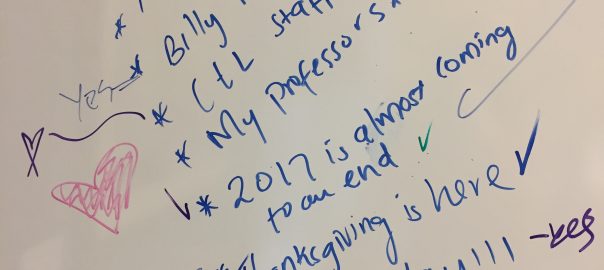 * Billy
Yes
* CTL staff
* My professors
* 2017 is almost coming
to an end
is here
!!! -yes